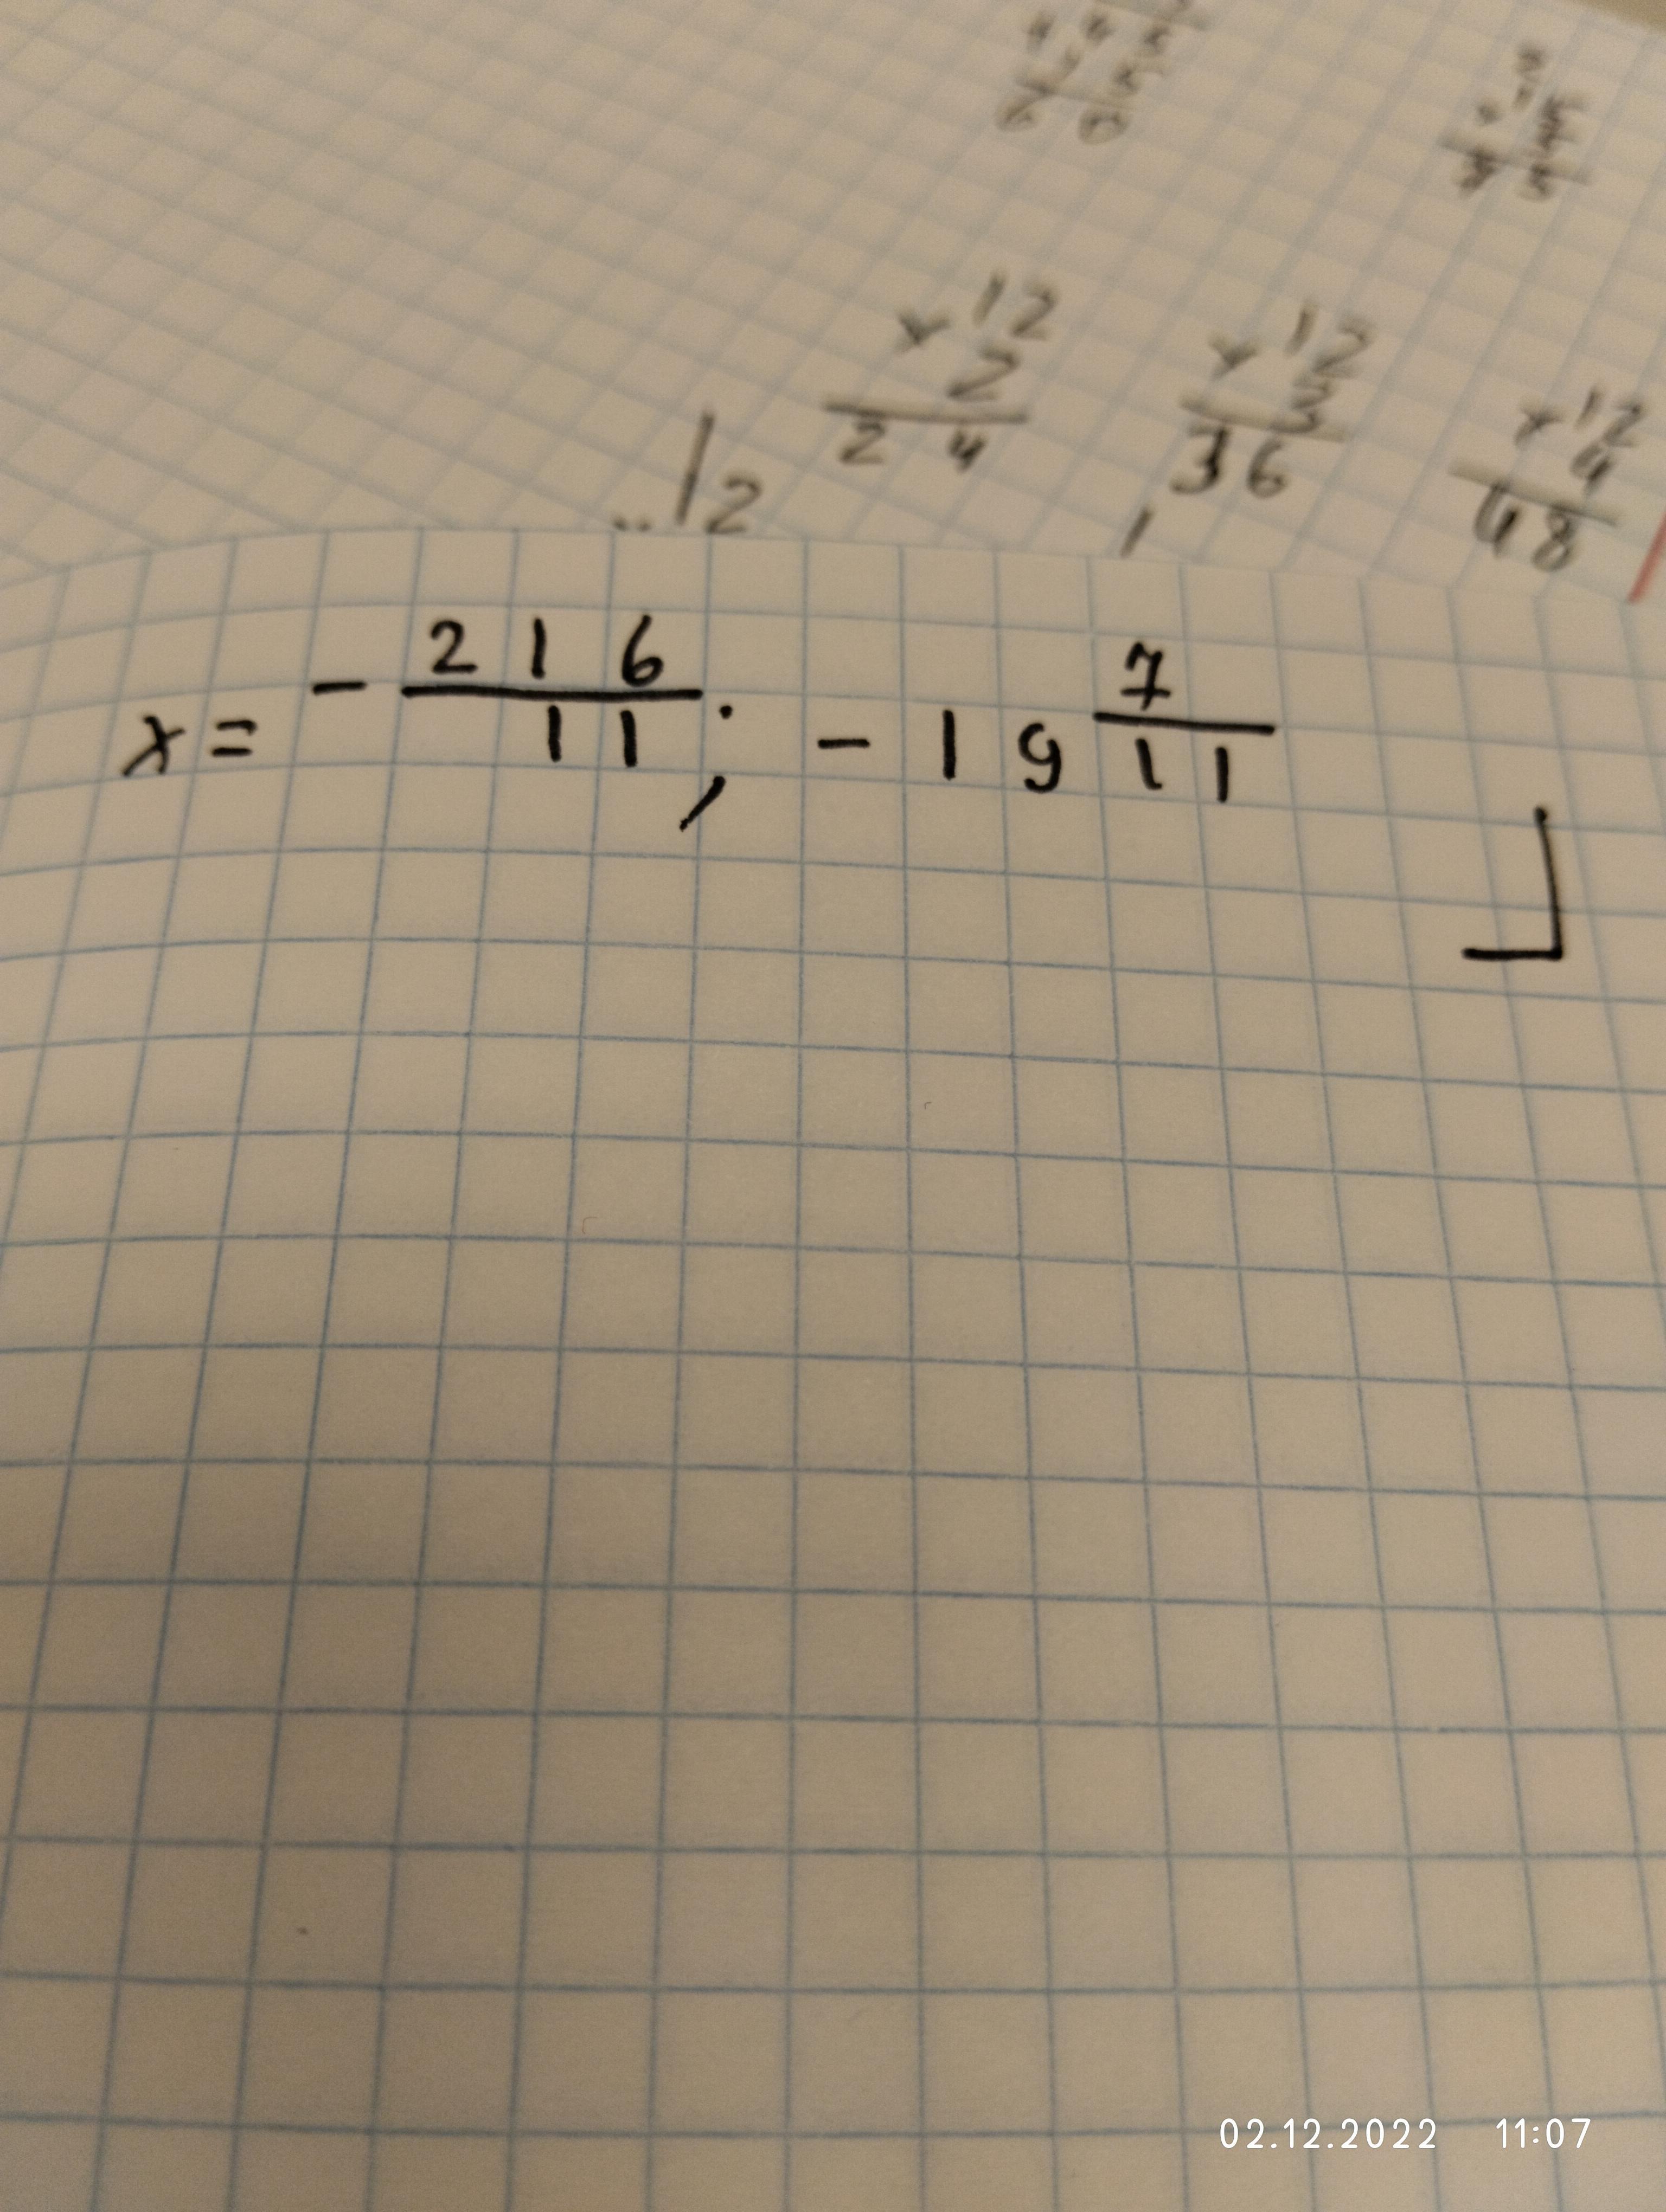 ×12
2
24
×12
3
36
×12
4
48
12
x = - 216/11; - 19 7/11
02.12.2022 11:07